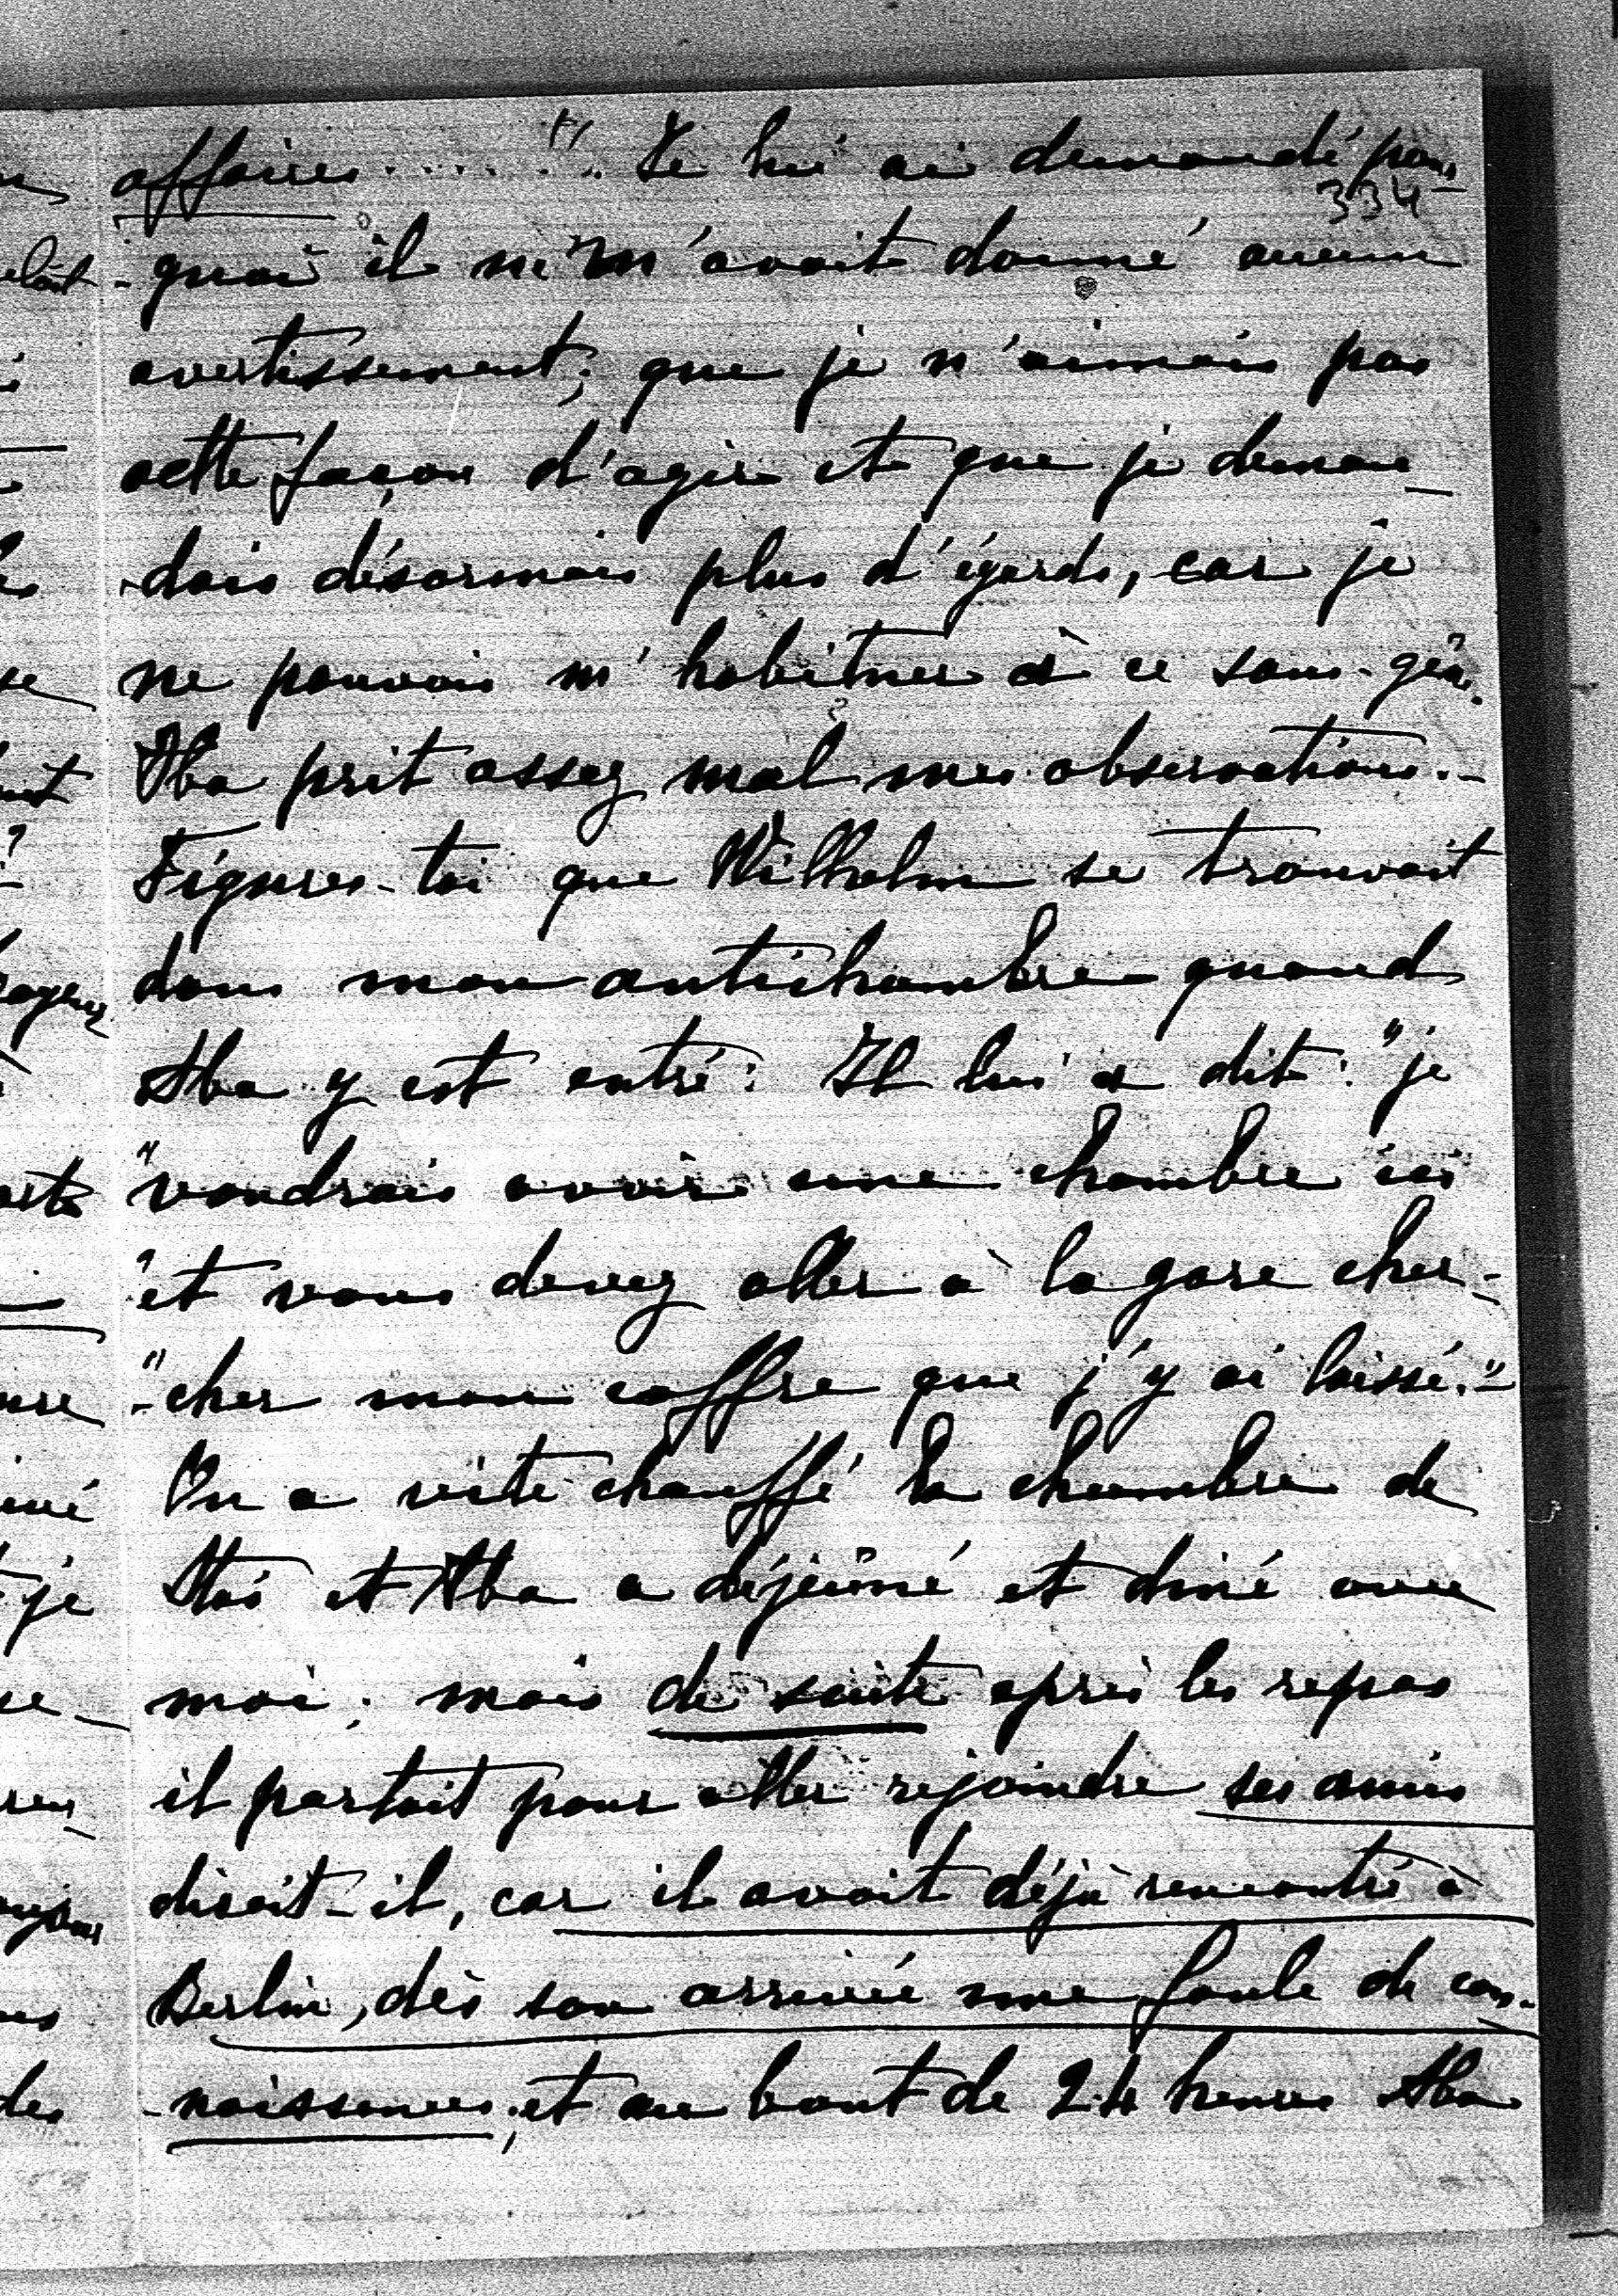 affaires ...... ". Je lui ai demandé pour-
334
-quoi il ne m'avait donné aucun
avertissement; que je n'aimais pas
cette façon d'agir et que je deman-
-dais désormais plus d'égards, car je
ne pouvais m'habituer à ce sans-gêne.
Aba prit assez mal mes observations.-
Figures-toi que Wilhelm se trouvait
dans mon antichambre quand
Aba y est entré: Il lui a dit: "je
"voudrais avoir une chambre ici
"et vous devez aller à la gare cher-
"-cher mon coffre que j'y ai laissé."-
On a vite chauffé la chambre de
Stas et Aba a déjeûné et diné avec
moi; mais de suite après les repas
il partait pour aller rejoindre ses amis
disait-il, car il avait déjà rencontré à
Berlin, dès son arrivée une foule de con-
-naissances; et au bout de 24 heures Aba